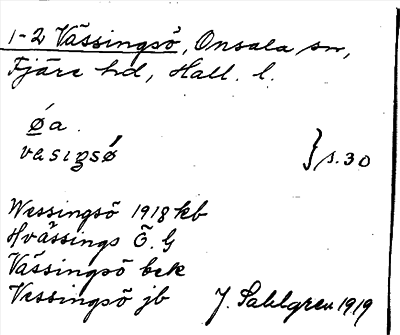 1-2 Vässingsö, Onsala sn,
Fjäre hd, Hall. l.
øa.
vasıŋsǿ } s. 30
Wessingsö 1918 kb
Hvässings Ö. G
Vässingsö bek
Vessingsö jb J. Sahlgren 1919